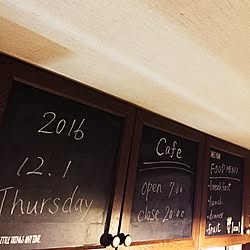 2016
12.1
Thursday
LITTLE THINGS ANYTIME
Cafe
open 7:00
close 20:00
FOOD MENU
breakfast
lunch
dinner